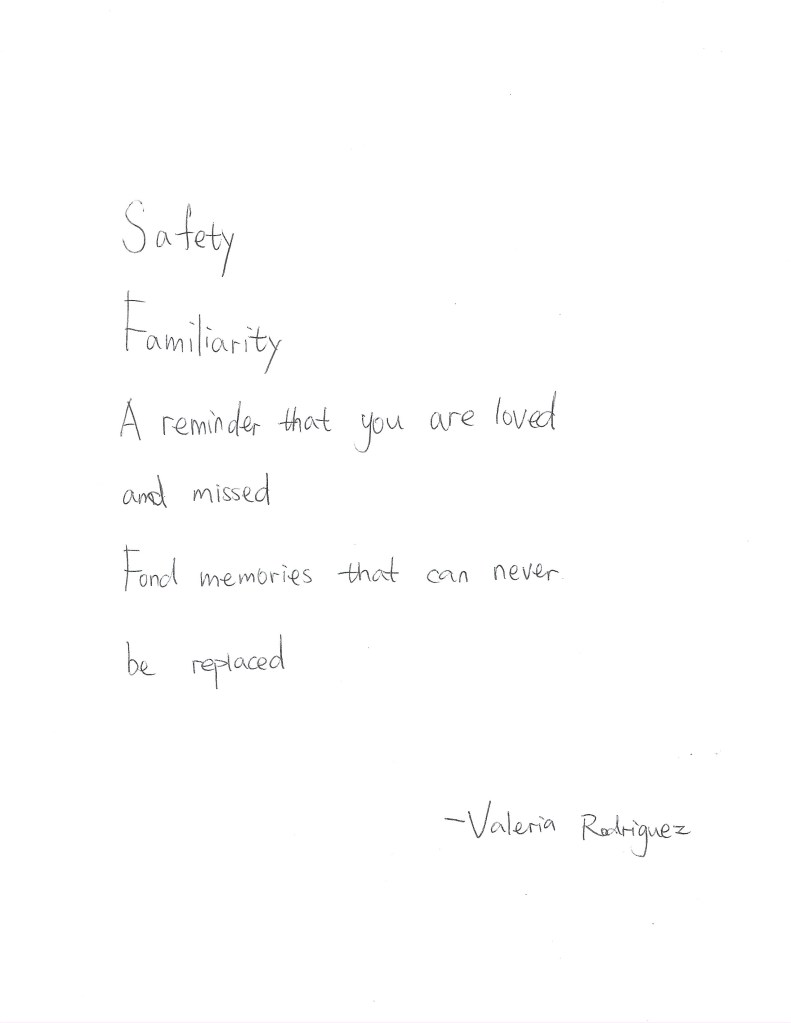 Safety
Familiarity
A reminder that you are loved
and missed
Fond memories that can never
be replaced
-Valeria Rodriguez